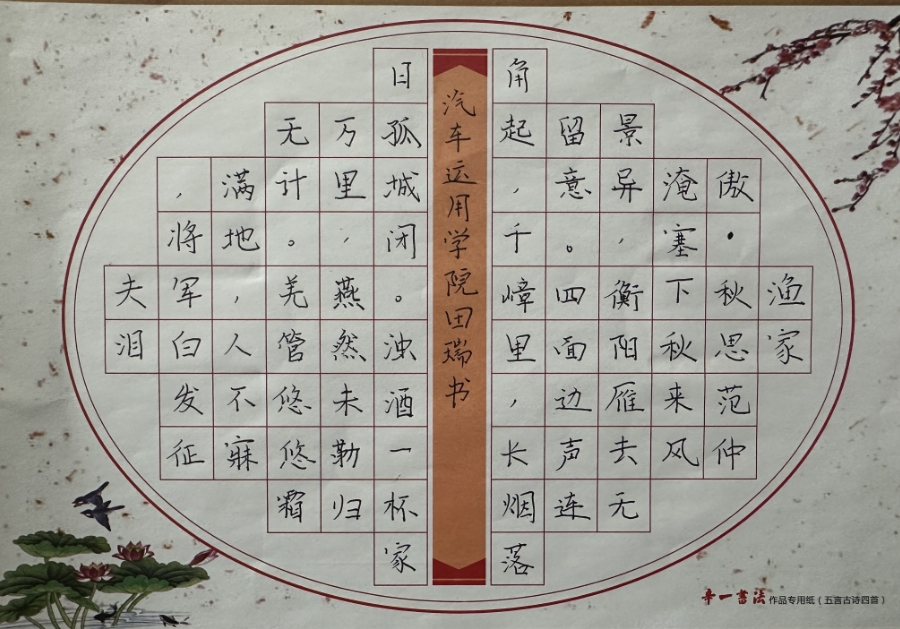 渔家
傲·秋思范仲
淹塞下秋来风
景异，衡阳雁去无
留意。四面边声连
角起，千嶂里，长烟落
汽车运用学院田瑞书
日孤城闭。浊酒一杯家
万里，燕然未勒归
无计。羌管悠悠霜
满地，人不寐
，将军白发征
夫泪
辛一书法 作品专用纸（五言古诗四首）